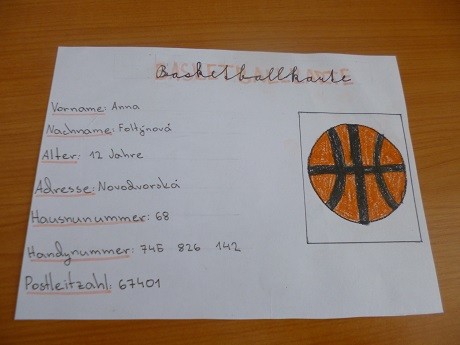 Basketballkarte
Vorname: Anna
Nachname: Foltýnová
Alter: 12 Jahre
Adresse: Novodvorská
Hausnunummer: 68
Handynummer: 745 826 142
Postleitzahl: 67401